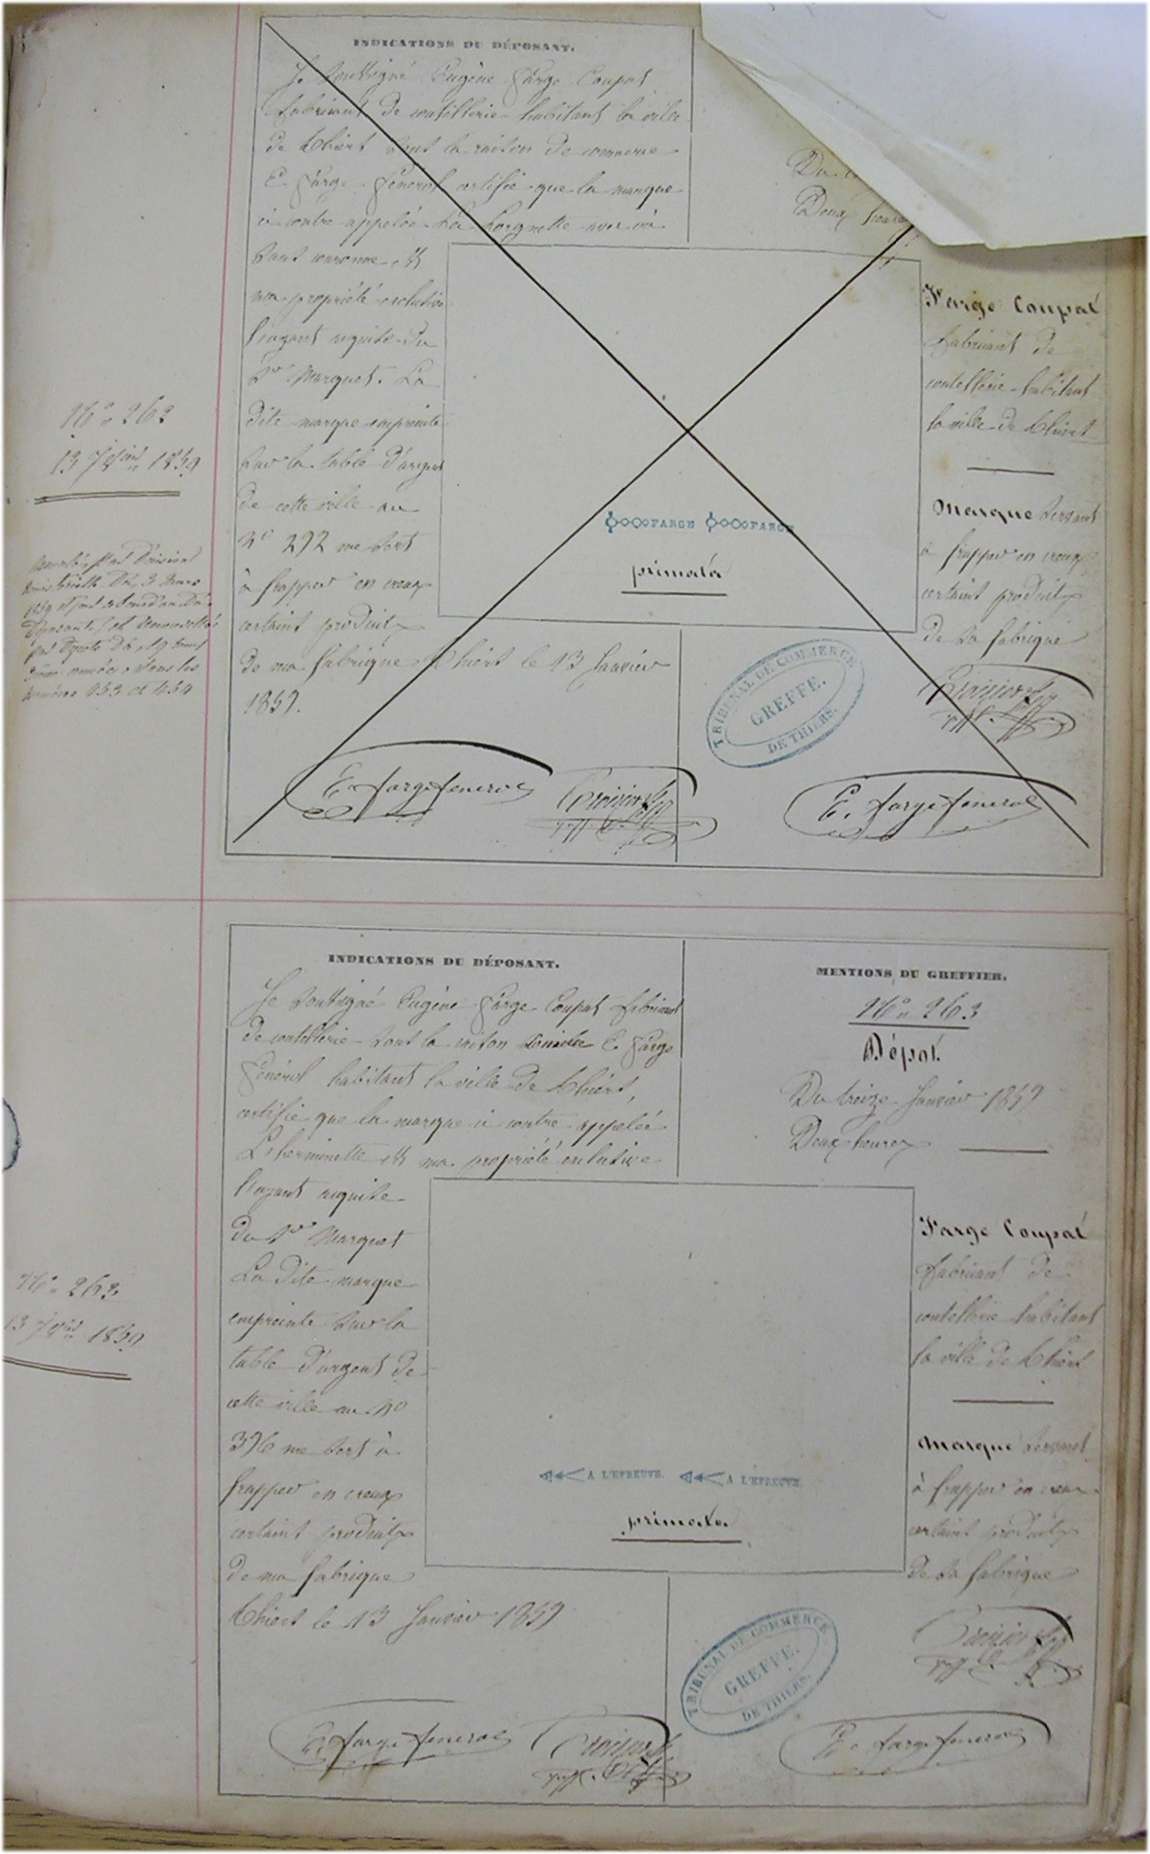 INDICATIONS DU DÉPOSANT.
Je soussigné Eugène Farge Coupat
fabricant de coutellerie habitant la ville
de Thiers dont la raison de commerce
E. Farge Féneról certifie que la marque
ci contre appelée La Lorgnette
couronne est
ma propriété exclusive
l'ayant acquise du
Sr Marquet. La
dite marque empreinte
sur la table d'argent
de cette ville au
No 292 me sert
à frapper en creux
certains produits
de ma fabrique Thiers le 13 Janvier
1859.
E. Farge Féneról
Du
Deux heures
Farge Coupat
fabricant de
coutellerie habitant
la ville de Thiers
Marque servant
à frapper en creux
certains produits
de sa fabrique
FARGE FARGE
primata
TRIBUNAL DE COMMERCE
GREFFE.
DE THIERS.
E. Farge Féneról
No 262
13 Janvier 1859
INDICATIONS DU DÉPOSANT.
Je soussigné Eugène Farge Coupat fabricant
de coutellerie dont la raison sociale E. Farge
Féneról habitant la ville de Thiers,
certifie que la marque ci contre appelée
L'herminette est ma propriété exclusive
l'ayant acquise
du Sr Marquet
La dite marque
empreinte sur la
table d'argent de
cette ville au No
396 me sert à
frapper en creux
certains produits
de ma fabrique
Thiers le 13 Janvier 1859
E. Farge Féneról
MENTIONS DU GREFFIER.
No 263
Dépôt.
Du treize Janvier 1859
Deux heures
Farge Coupat
fabricant de
coutellerie habitant
la ville de Thiers
Marque servant
à frapper en creux
certains produits
de sa fabrique
A L'EPREUVE. A L'EPREUVE.
primata
TRIBUNAL DE COMMERCE
GREFFE.
DE THIERS.
E. Farge Féneról
No 263
13 Jer 1859